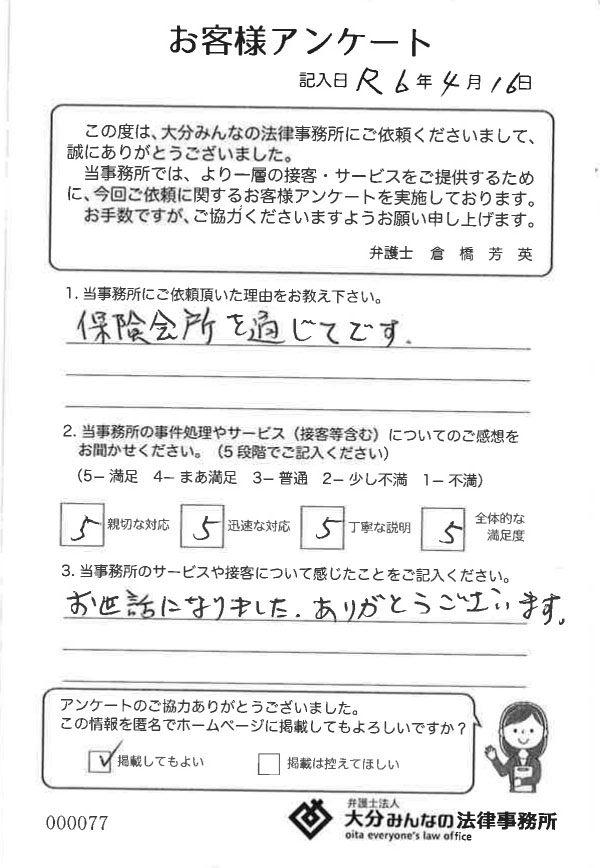 お客様アンケート
記入日 R6年4月16日
この度は、大分みんなの法律事務所にご依頼くださいまして、
誠にありがとうございました。
当事務所では、より一層の接客・サービスをご提供するため
に、今回ご依頼に関するお客様アンケートを実施しております。
お手数ですが、ご協力くださいますようお願い申し上げます。
弁護士 倉橋芳英
1. 当事務所にご依頼頂いた理由をお教え下さい。
保険会所を通じてです.
2. 当事務所の事件処理やサービス（接客等含む）についてのご感想を
お聞かせください。（5段階でご記入ください）
（5ー満足 4ーまあ満足 3ー普通 2ー少し不満 1ー不満）
5 親切な対応 5 迅速な対応 5 丁寧な説明 5 全体的な
満足度
3. 当事務所のサービスや接客について感じたことをご記入ください。
お世話になりました. ありがとうございます。
アンケートのご協力ありがとうございました。
この情報を匿名でホームページに掲載してもよろしいですか？
掲載してもよい 掲載は控えてほしい
000077
弁護士法人
大分みんなの法律事務所
oita everyone's law office